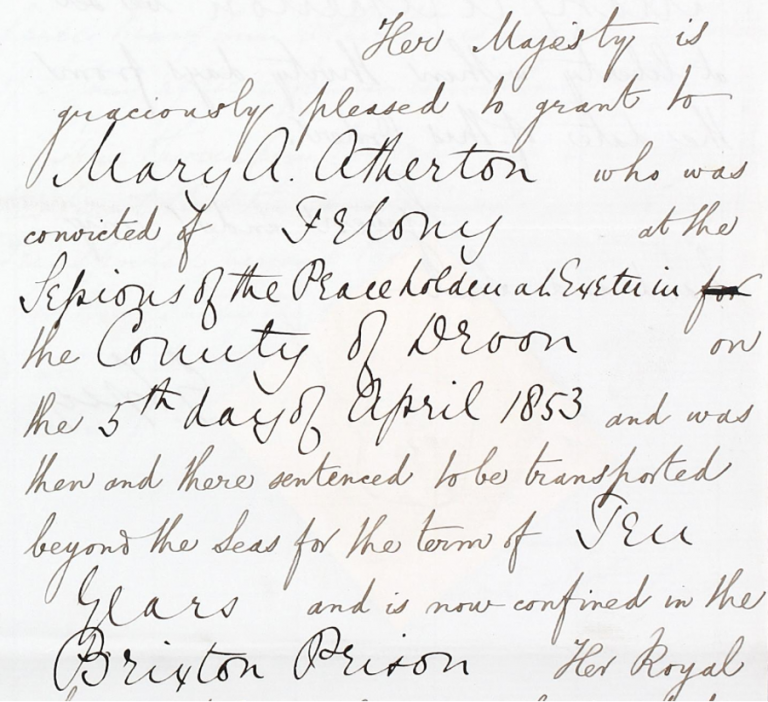 Her Majesty is
graciously pleased to grant to
Mary A. Atherton who was
convicted of Felony at the
Sessions of the Peace holden at Exeter in for
the County of Devon on
the 5th day of April 1853 and was
then and there sentenced to be transported
beyond the Seas for the term of Ten
Years and is now confined in the
Brixton Prison Her Royal